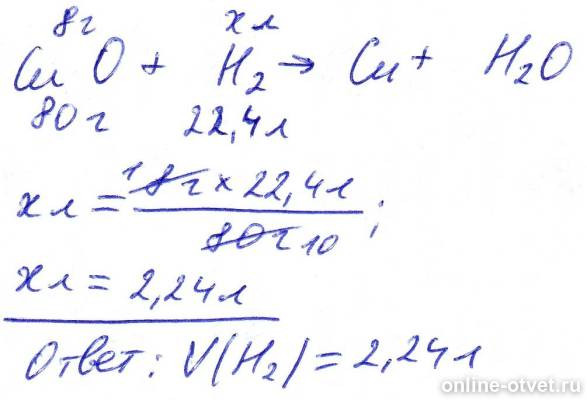 8г x л
CuO + H₂ → Cu + H₂O
80г 22,4л
x л = ¹8г × 22,4л / 80г 10 ;
x л = 2,24л
Ответ: V(H₂) = 2,24л
online-otvet.ru